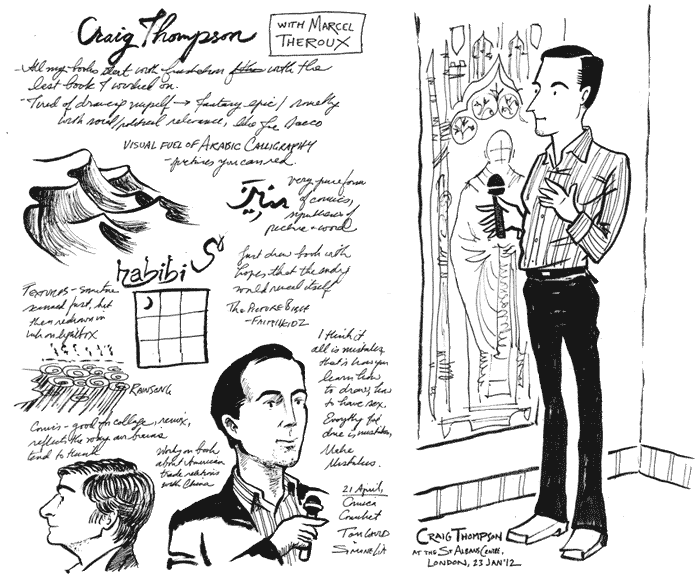 Craig Thompson
WITH MARCEL
THEROUX
- All my books deal with with the
last book I worked on.
- Tired of drawing myself → fantasy epic /
with social/political relevance, like Joe Sacco
VISUAL FUEL OF ARABIC CALLIGRAPHY
- pictures you can read.
very pure form
of comics,
of
picture + word
habibi
Just draw book with
hopes that the ending
would reveal itself
TEXTURES - sometimes
scanned part, but
then redrawn in
on lightbox
THE PICTURE BIBLE
RAINSONG
I think it
all is mistakes,
that is how you
learn how
to draw, how
to have sex.
Everything I've
done is mistakes.
Make
Mistakes.
Comics - good on collage, remix,
reflects the way our brains
tend to think
Working on book
about American
trade relations
with China
21 April,
Comica
Comiket
Tom Gauld
Simone Lia
CRAIG THOMPSON
AT THE ST ALBANS CENTRE,
LONDON, 23 JAN '12